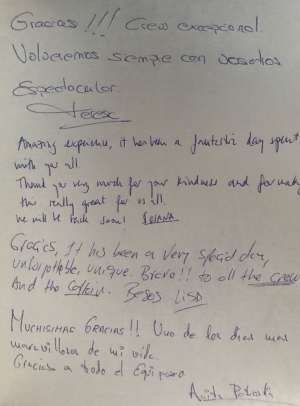 Gracias!!! Crew excepcional.
Volveremos siempre con vosotros
Espectacular
Amazing experience, it has been a fantastic day spent
with you all.
Thank you very much for your kindness and for making
this really great for us all.
We will be back soon!
Gracias, It has been a very special day,
unforgettable, unique. Bravo!! to all the crew
And the Captain. Besos LISA
Muchisimas Gracias!! Uno de los dias mas
maravillosa de mi vida.
Gracias a todo el Equipo